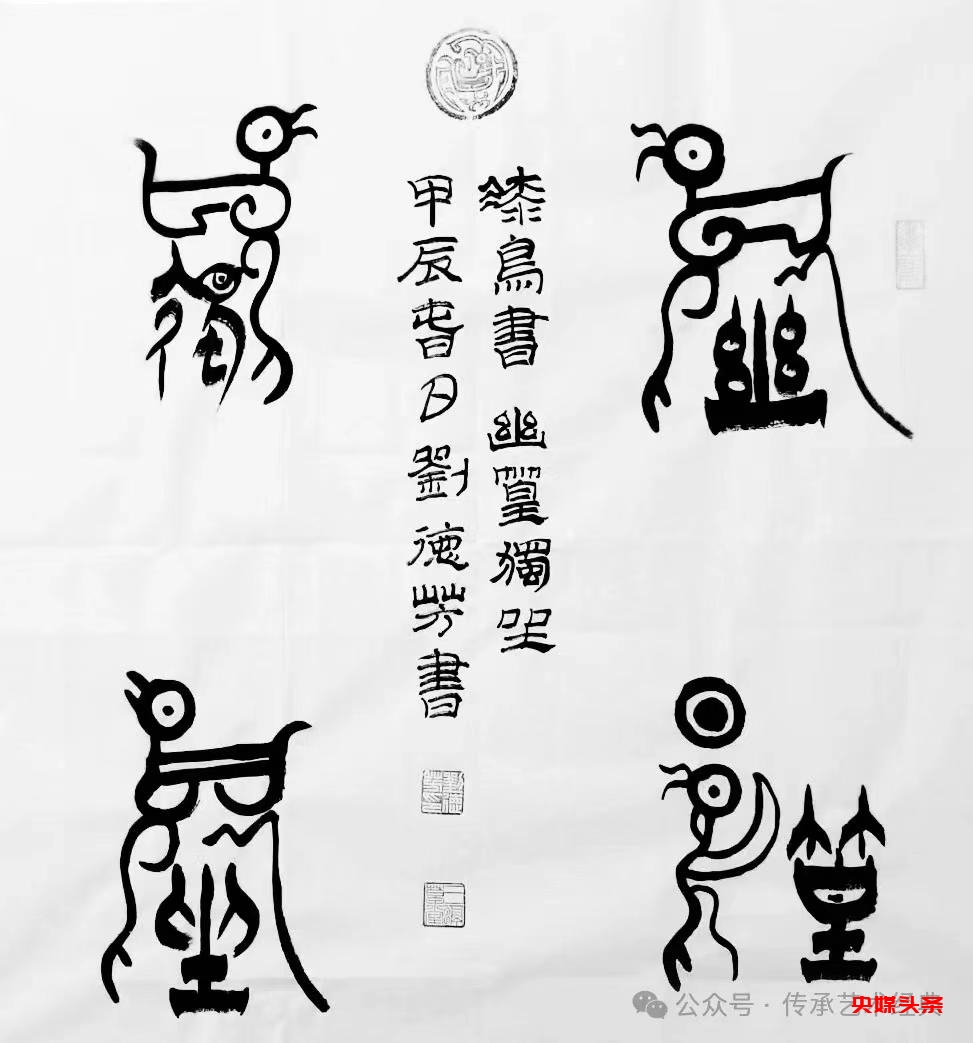 幽篁
獨坐
漆鳥書 幽篁獨坐
甲辰春日劉德芳書
公众号 · 传承艺术经典
央媒头条